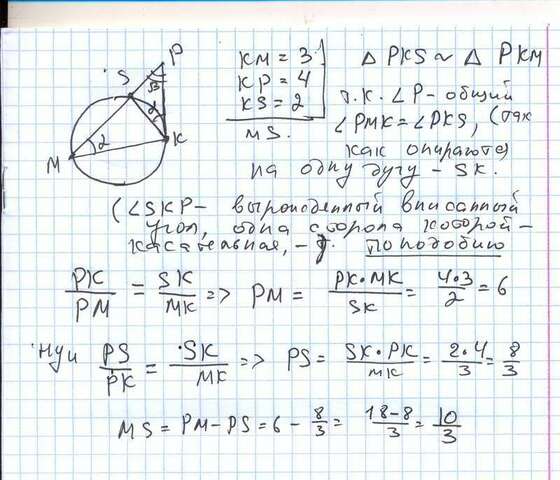 P
S
β
α
K
M
α
KM = 3
KP = 4
KS = 2
MS.
△ PKS ~ △ PKM
т.к. ∠P - общий
∠PMK = ∠PKS, (так
как опираются
на одну дугу - SK.
(∠SKP - вырожденный вписанный
угол, одна сторона которой -
касательная, -
по подобию
PK/PM = SK/MK => PM = PK·MK/SK = 4·3/2 = 6
Ну и PS/PK = SK/MK => PS = SK·PK/MK = 2·4/3 = 8/3
MS = PM - PS = 6 - 8/3 = 18-8/3 = 10/3